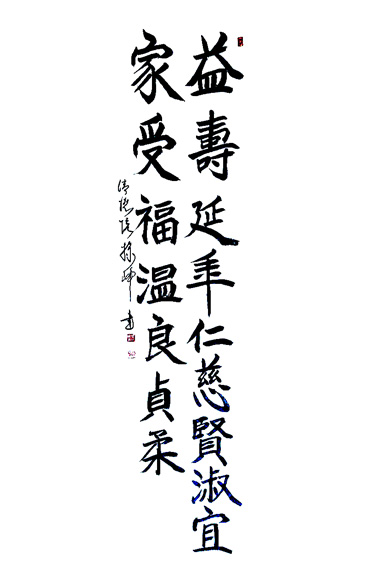 益壽延年仁慈賢淑宜
家受福溫良貞柔